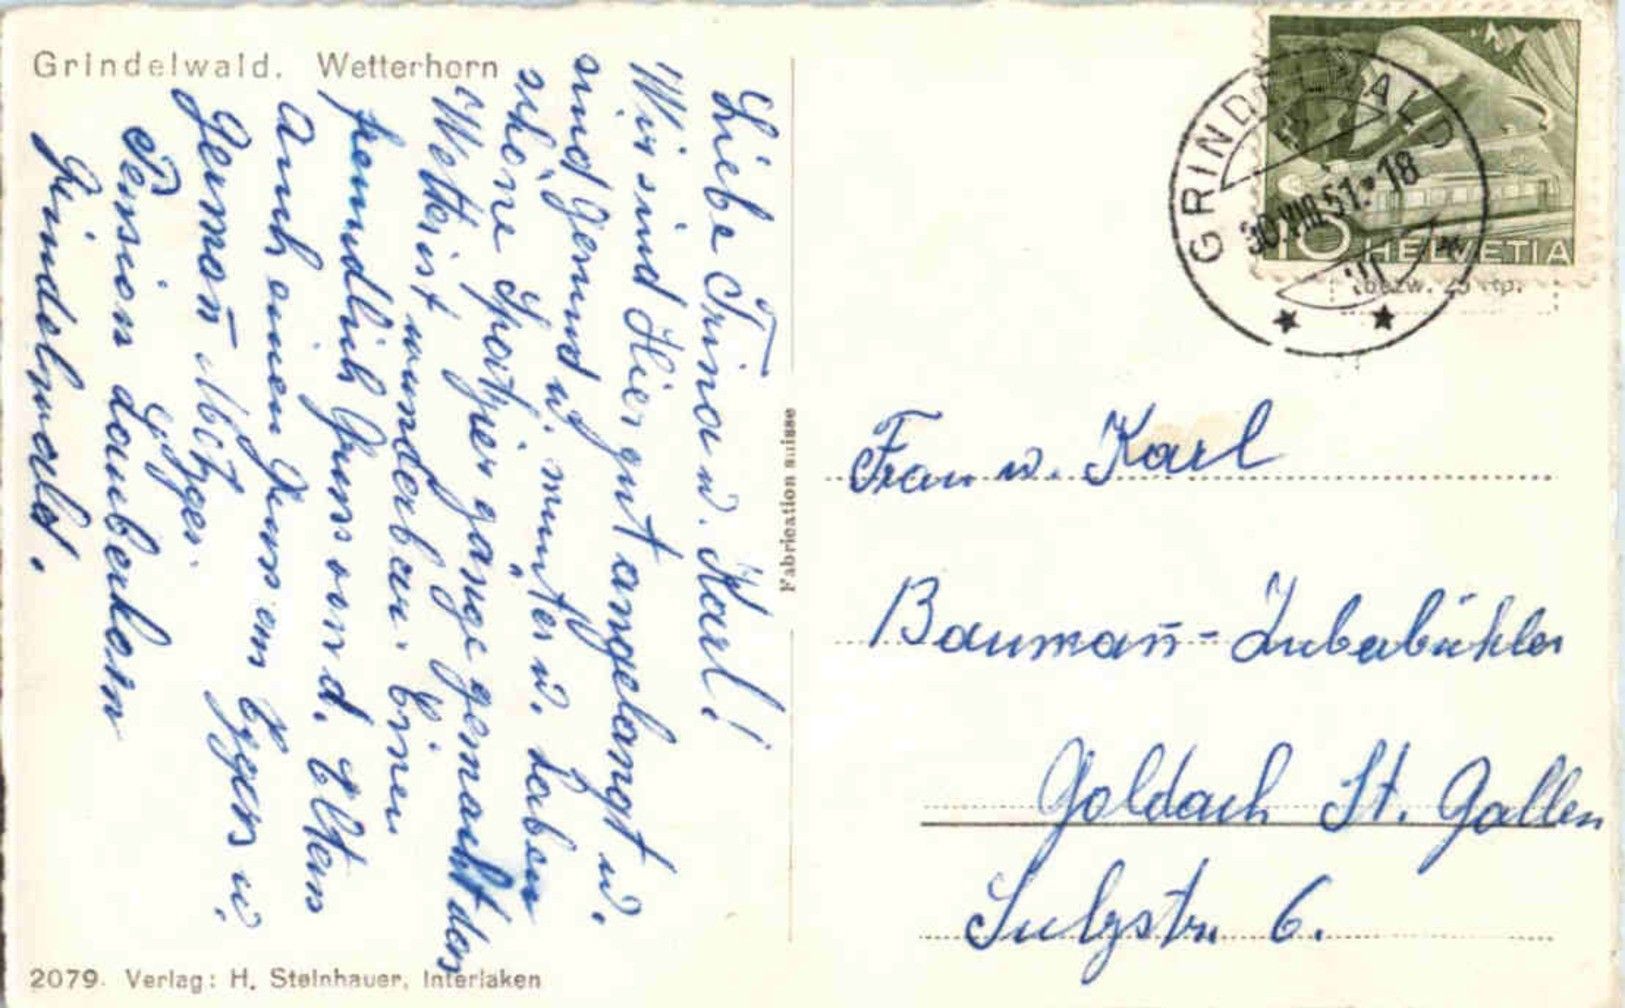 Grindelwald. Wetterhorn
Liebe Trina u. Karl!
Wir sind Hier gut angelangt u.
sind Gesund u. munter u. haben
schöne Spatziergänge gemacht das
Wetter ist wunderbar. Einen
freundlich Gruss von d. Eltern
Auch einen Gruss von Eugen u.
Pension
Grindelwald.
2079. Verlag: H. Steinhauer, Interlaken
Fabrication suisse
GRINDELWALD
30.VIII.51.-18
10 HELVETIA
bezw. 25 Rp.
Frau u. Karl
Bauman̄-Zuberbühler
Goldach St. Gallen
Sulzstr. 6.